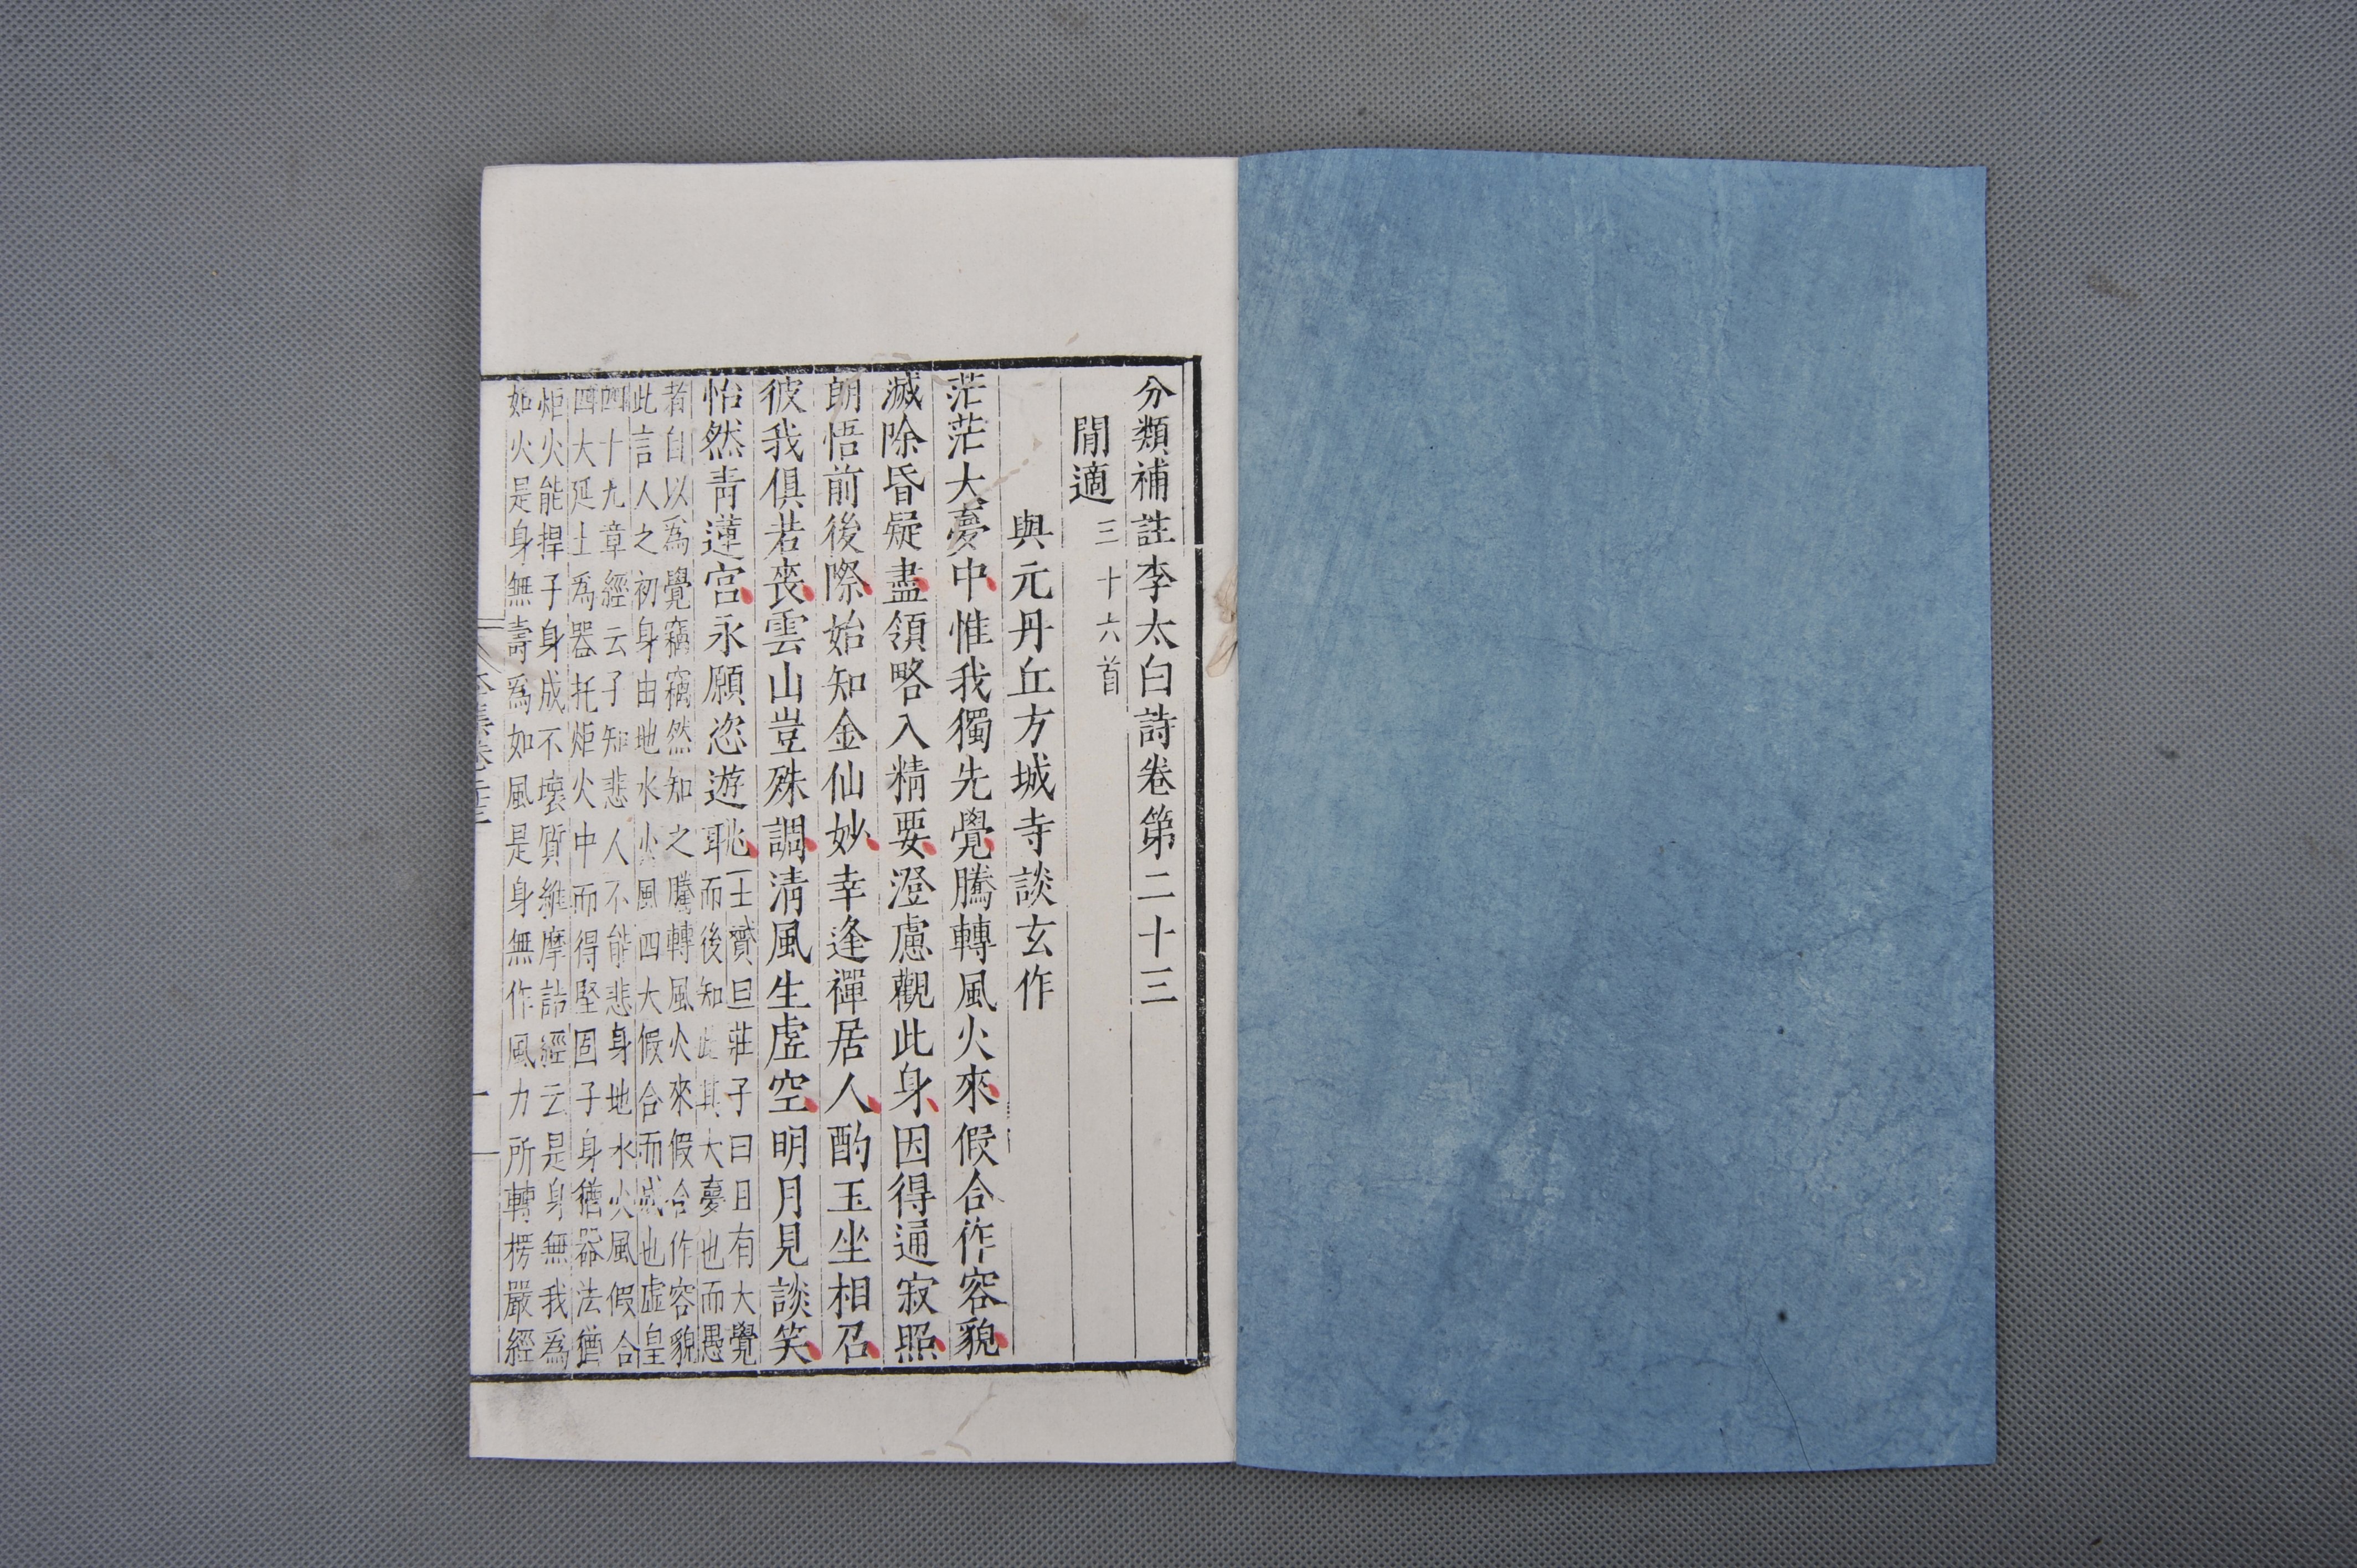 分類補註李太白詩卷第二十三
閒適三十六首
與元丹丘方城寺談玄作
茫茫大夢中惟我獨先覺騰轉風火來假合作容貌
滅除昏疑盡領略入精要澄慮觀此身因得通寂照
朗悟前後際始知金仙妙幸逢禪居人酌玉坐相召
彼我俱若喪雲山豈殊調清風生虛空明月見談笑
怡然青蓮宮永願恣遊眺
士贇曰莊子曰且有大覺
而後知此其大夢也而愚
者自以爲覺竊竊然知之騰轉風火來假合作容貌
此言人之初身由地水火風四大假合而成也虛皇
四十九章經云子知悲人不能悲身地水火風假合
四大延土爲器托炬火中而得堅固子身猶器法猶
炬火能捍子身成不壞質維摩詰經云是身無我爲
如火是身無壽爲如風是身無作風力所轉楞嚴經